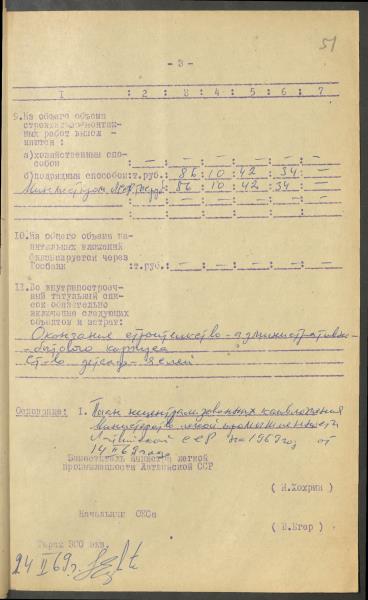 51
- 3 -
I : 2 : 3 : 4 : 5 : 6 : 7
9. Из общего объема
строительно-монтаж-
ных работ выпол -
няются :
а) хозяйственным спо-
собом — : — : — : — : — : —
б) подрядным способом: т.руб.: 86 : 10 : 42 : 34 : —
86 : 10 : 42 : 34 : —
10. Из общего объема ка-
питальных вложений
финансируется через
Госбанк : т.руб.: — : — : — : — : —
11. Во внутрипостроеч-
ный титульный спи-
сок обязательно
включение следующих
объектов и затрат:
Окончание строительство-административно-
-бытового корпуса
Ст-во детсада-яслей
Основание: I. План нецентрализованных капвложений
Министерства легкой промышленности
Латвийской ССР на 1969 год от
14 II 69 года
Заместитель министра легкой
промышленности Латвийской ССР
( И.Хохрин )
Начальник ОКСа
( Егер )
Тираж 300 экз.
24 II 69 г.